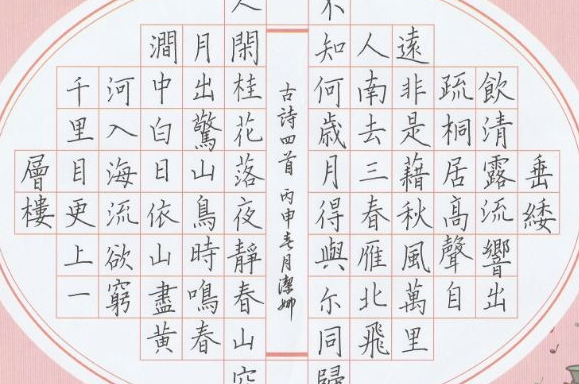 垂緌
飲清露流響出
疏桐居高聲自
遠非是藉秋風萬里
人南去三春雁北飛
不知何歲月得與尔同歸
古詩四首 丙申春月潔
人閑桂花落夜靜春山空
月出驚山鳥時鳴春
澗中白日依山盡黃
河入海流欲窮
千里目更上一
層樓